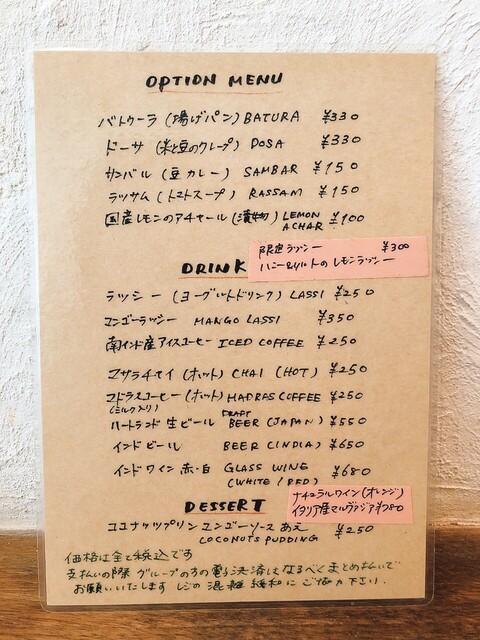 OPTION MENU
バトゥーラ (揚げパン) BATURA ¥330
ドーサ (米と豆のクレープ) DOSA ¥330
サンバル (豆カレー) SAMBAR ¥150
ラッサム (トマトスープ) RASSAM ¥150
国産レモンのアチャール (漬物) LEMON ACHAR ¥100
限定ラッシー ¥300
ハニー&ミルトのレモンラッシー
DRINK
ラッシー (ヨーグルトドリンク) LASSI ¥250
マンゴーラッシー MANGO LASSI ¥350
南インド産アイスコーヒー ICED COFFEE ¥250
マサラチャイ (ホット) CHAI (HOT) ¥250
マドラスコーヒー (ホット) MADRAS COFFEE ¥250
(ミルク入り)
ハートランド 生ビール DRAFT BEER (JAPAN) ¥550
インドビール BEER (INDIA) ¥650
インドワイン 赤・白 GLASS WINE ¥680
(WHITE / RED)
ナチュラルワイン (オレンジ)
イタリア産マルヴァジア ¥780
DESSERT
ココナッツプリン マンゴーソースあえ ¥250
COCONUTS PUDDING
価格は全て税込です
支払いの際 グループの方の電子決済はなるべくまとめ払いで
お願いいたします レジの混雑緩和にご協力下さい.